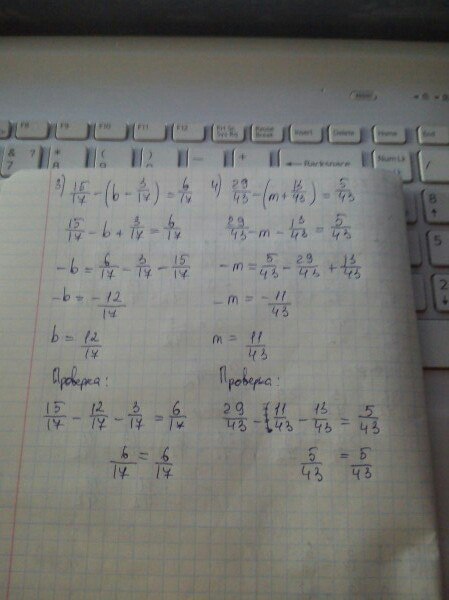 F8 F9 F10 F11 F12 Prt Sc Sys Rq Pause Break Insert Delete Home End
& 7 ? * 8 ( 9 ) - + Backspace Num Lk
3) 15/17 - (b - 3/17) = 6/17
15/17 - b + 3/17 = 6/17
-b = 6/17 - 3/17 - 15/17
-b = -12/17
b = 12/17
Проверка:
15/17 - 12/17 - 3/17 = 6/17
6/17 = 6/17
4) 29/43 - (m + 13/43) = 5/43
29/43 - m - 13/43 = 5/43
-m = 5/43 - 29/43 + 13/43
-m = -11/43
m = 11/43
Проверка:
29/43 - 11/43 - 13/43 = 5/43
5/43 = 5/43
8
5
2